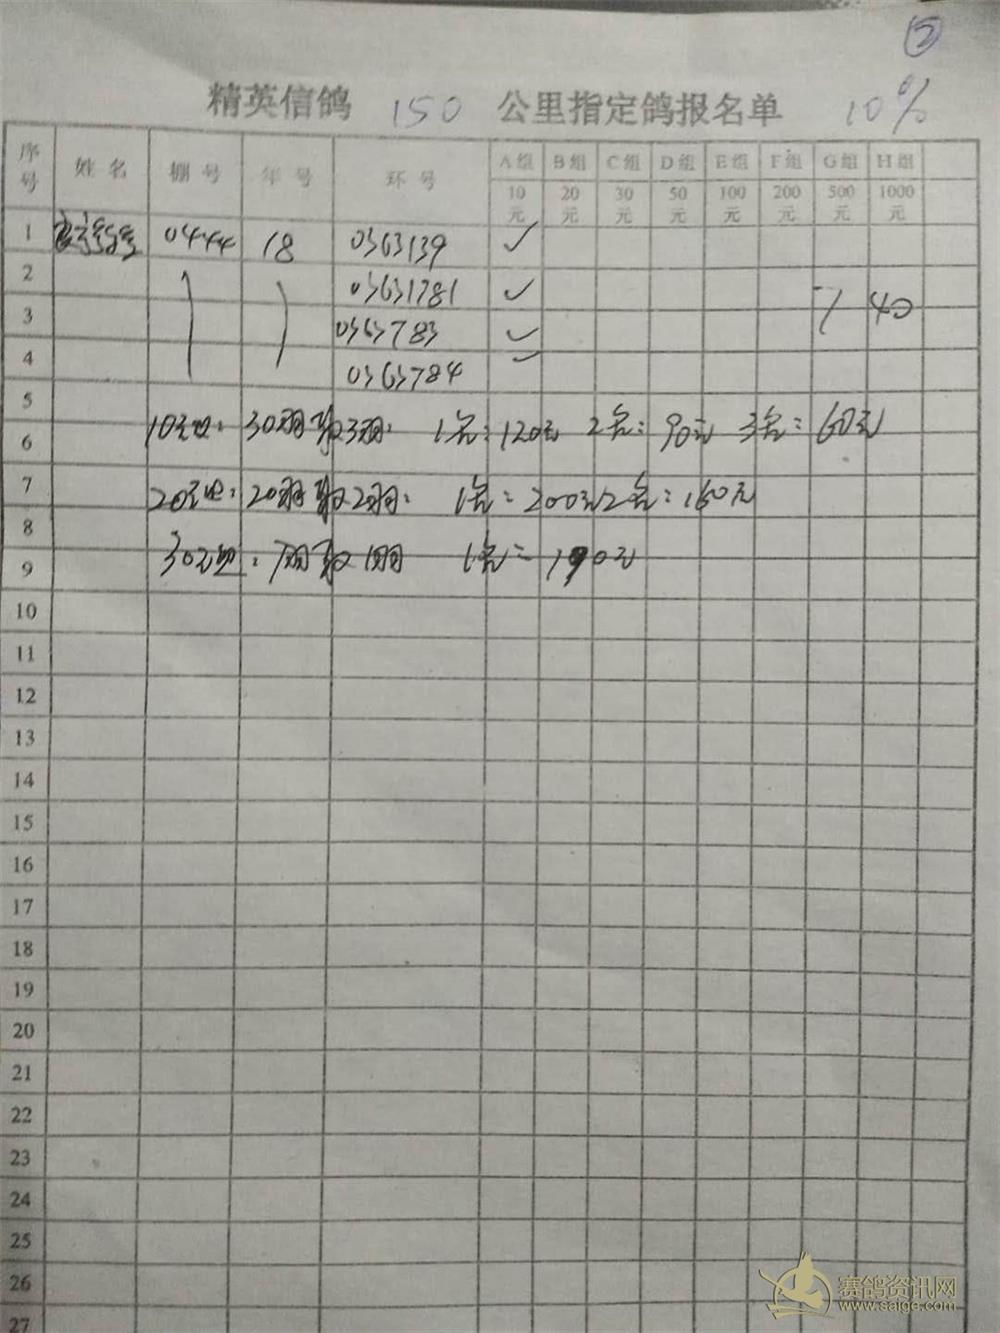 ②
精英信鸽 150 公里指定鸽报名单 10%
序号 姓名 棚号 年号 环号 A组 B组 C组 D组 E组 F组 G组 H组
10元 20元 30元 50元 100元 200元 500元 1000元
1 0444 18 0363139 ✓
2 03631781 ✓
3 0363783 ✓ 40
4 0363784 ✓
5
6 10元组: 30羽取3羽: 1名:120元 2名:90元 3名:60元
7 20元组: 20羽取2羽: 1名:200元 2名:160元
8
9 30元组: 7羽取1羽 1名: 190元
10
11
12
13
14
15
16
17
18
19
20
21
22
23
24
25
26
27
赛鸽资讯网
www.saige.com